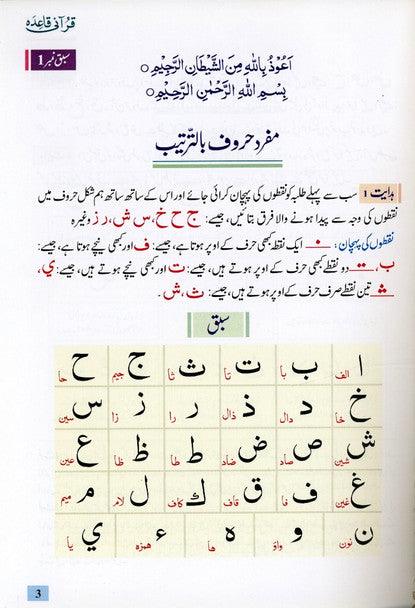 قرآنی قاعدہ
سبق نمبر 1
اَعُوْذُ بِاللّٰهِ مِنَ الشَّيْطَانِ الرَّجِيْمِ ○
بِسْمِ اللّٰهِ الرَّحْمٰنِ الرَّحِيْمِ ○
مفرد حروف بالترتیب
ہدایت 1 سب سے پہلے طلبہ کو نقطوں کی پہچان کرائی جائے اور اس کے ساتھ ساتھ ہم شکل حروف میں
نقطوں کی وجہ سے پیدا ہونے والا فرق بتائیں، جیسے: ج ح خ، س ش، ر ز وغیرہ
نقطوں کی پہچان: ایک نقطہ کبھی حرف کے اوپر ہوتا ہے، جیسے: ف اور کبھی نیچے ہوتا ہے، جیسے:
ب، دو نقطے کبھی حرف کے اوپر ہوتے ہیں، جیسے: ت اور کبھی نیچے ہوتے ہیں، جیسے: ي،
تین نقطے صرف حرف کے اوپر ہوتے ہیں، جیسے: ث، ش۔
سبق
ا الف ب با ت تا ث ثا ج جیم ح حا
خ خا د دال ذ ذال ر را ز زا س سین
ش شین ص صاد ض ضاد ط طا ظ ظا ع عین
غ غین ف فا ق قاف ك کاف ل لام م میم
ن نون و واؤ ه ھا ء ھمزہ ي یا
3